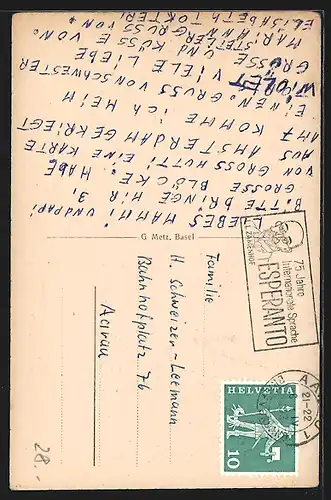 LIEBES MAMMI UND PAPI
BITTE BRINGE MIR 3,
GROSSE BLÖCKE. HABE
VON GROSSMUTTI EINE KARTE
AUS AMSTERDAM GEKRIEGT
AM 7 KOMME ich HEIM
EINEN GRUSS VON SCHWESTER
VIOLET VIELE LIEBE
GRÜSSE UND KÜSSE VON.
MARIANN GRUSS VON.
ELISABETH
G Metz, Basel
75 Jahre
Internationale Sprache
ESPERANTO
L.L. ZAMENHOF
AARAU 1
21-22
HELVETIA
10
Familie
H. Schweizer-Leemann
Bahnhofplatz 76
Aarau
28.-